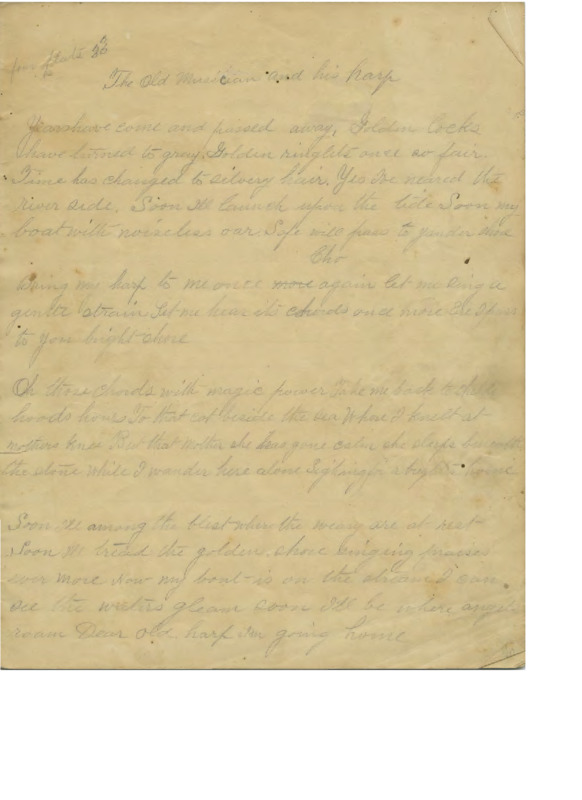 The Old Musician and his harp
Years have come and passed away, Golden locks
have turned to gray. Golden ringlets once so fair
Time has changed to silvery hair. Yes I've neared the
river side. Soon Ill launch upon the tide Soon my
boat with noiseless oar Safe will pass to yonder shore
Cho
Bring my harp to me once more again let me sing a
gentle strain Let me hear its chords once more Ere I pass
to yon bright shore
Oh those chords with magic power Take me back to child
hoods hours To that cot beside the sea Where I knelt at
mothers knee But that Mother she has gone calm she sleeps beneath
the stone while I wander here alone Sighing for a brighter home
Soon Ill among the blest when the weary are at rest
Soon Ill tread the golden shore singing praises
ever more now my boat is on the stream I can
see the waters gleam soon I'll be where angels
roam Dear old harp I'm going home